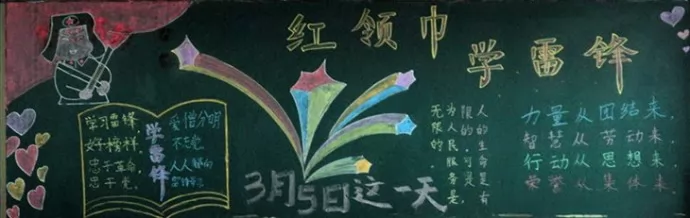 红领巾
学雷锋
学习雷锋
好榜样
忠于革命
忠于党
学雷锋
爱憎分明
不忘
人的生命是有
限的,可是,
为人民服务是
无限的。
力量从团结来,
智慧从劳动来,
行动从思想来,
荣誉从集体来,
3月5日这一天